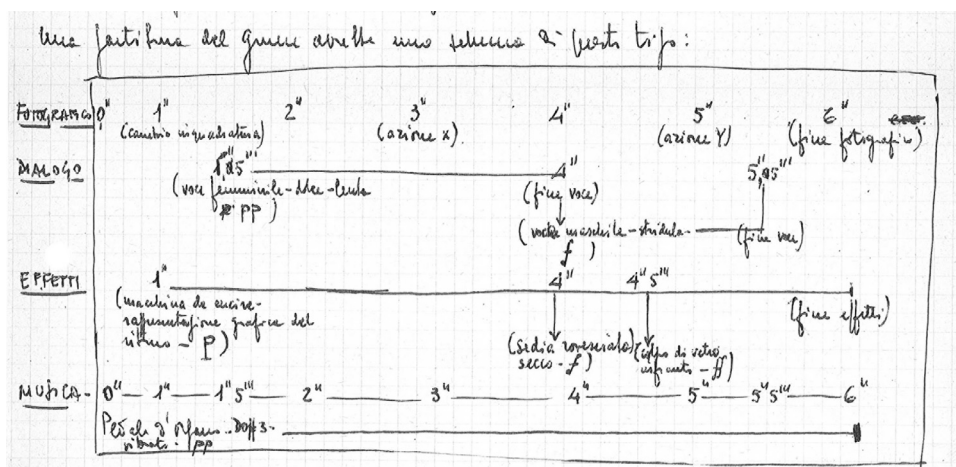 Una partitura del genere avrebbe uno schema di questo tipo:
FOTOGRAMMI 0" 1" 2" 3" 4" 5" 6"
(cambio inquadratura) (azione X) (azione Y) (fine fotografico)
DIALOGO 4"
(voce femminile - dolce - lenta (fine voce)
pp )
(voce maschile - stridula (fine voce)
f )
EFFETTI 1" 4" 4" 5"'
(macchina da cucire - (fine effetti)
rappresentazione grafica del
ritmo - P)
(sedia rovesciata) (colpo di vetro
secco - f) infranto - ff)
MUSICA - 0" 1" 1" 5"' 2" 3" 4" 5" 5" 5"' 6"
Pedale d'organo
vibrato - pp